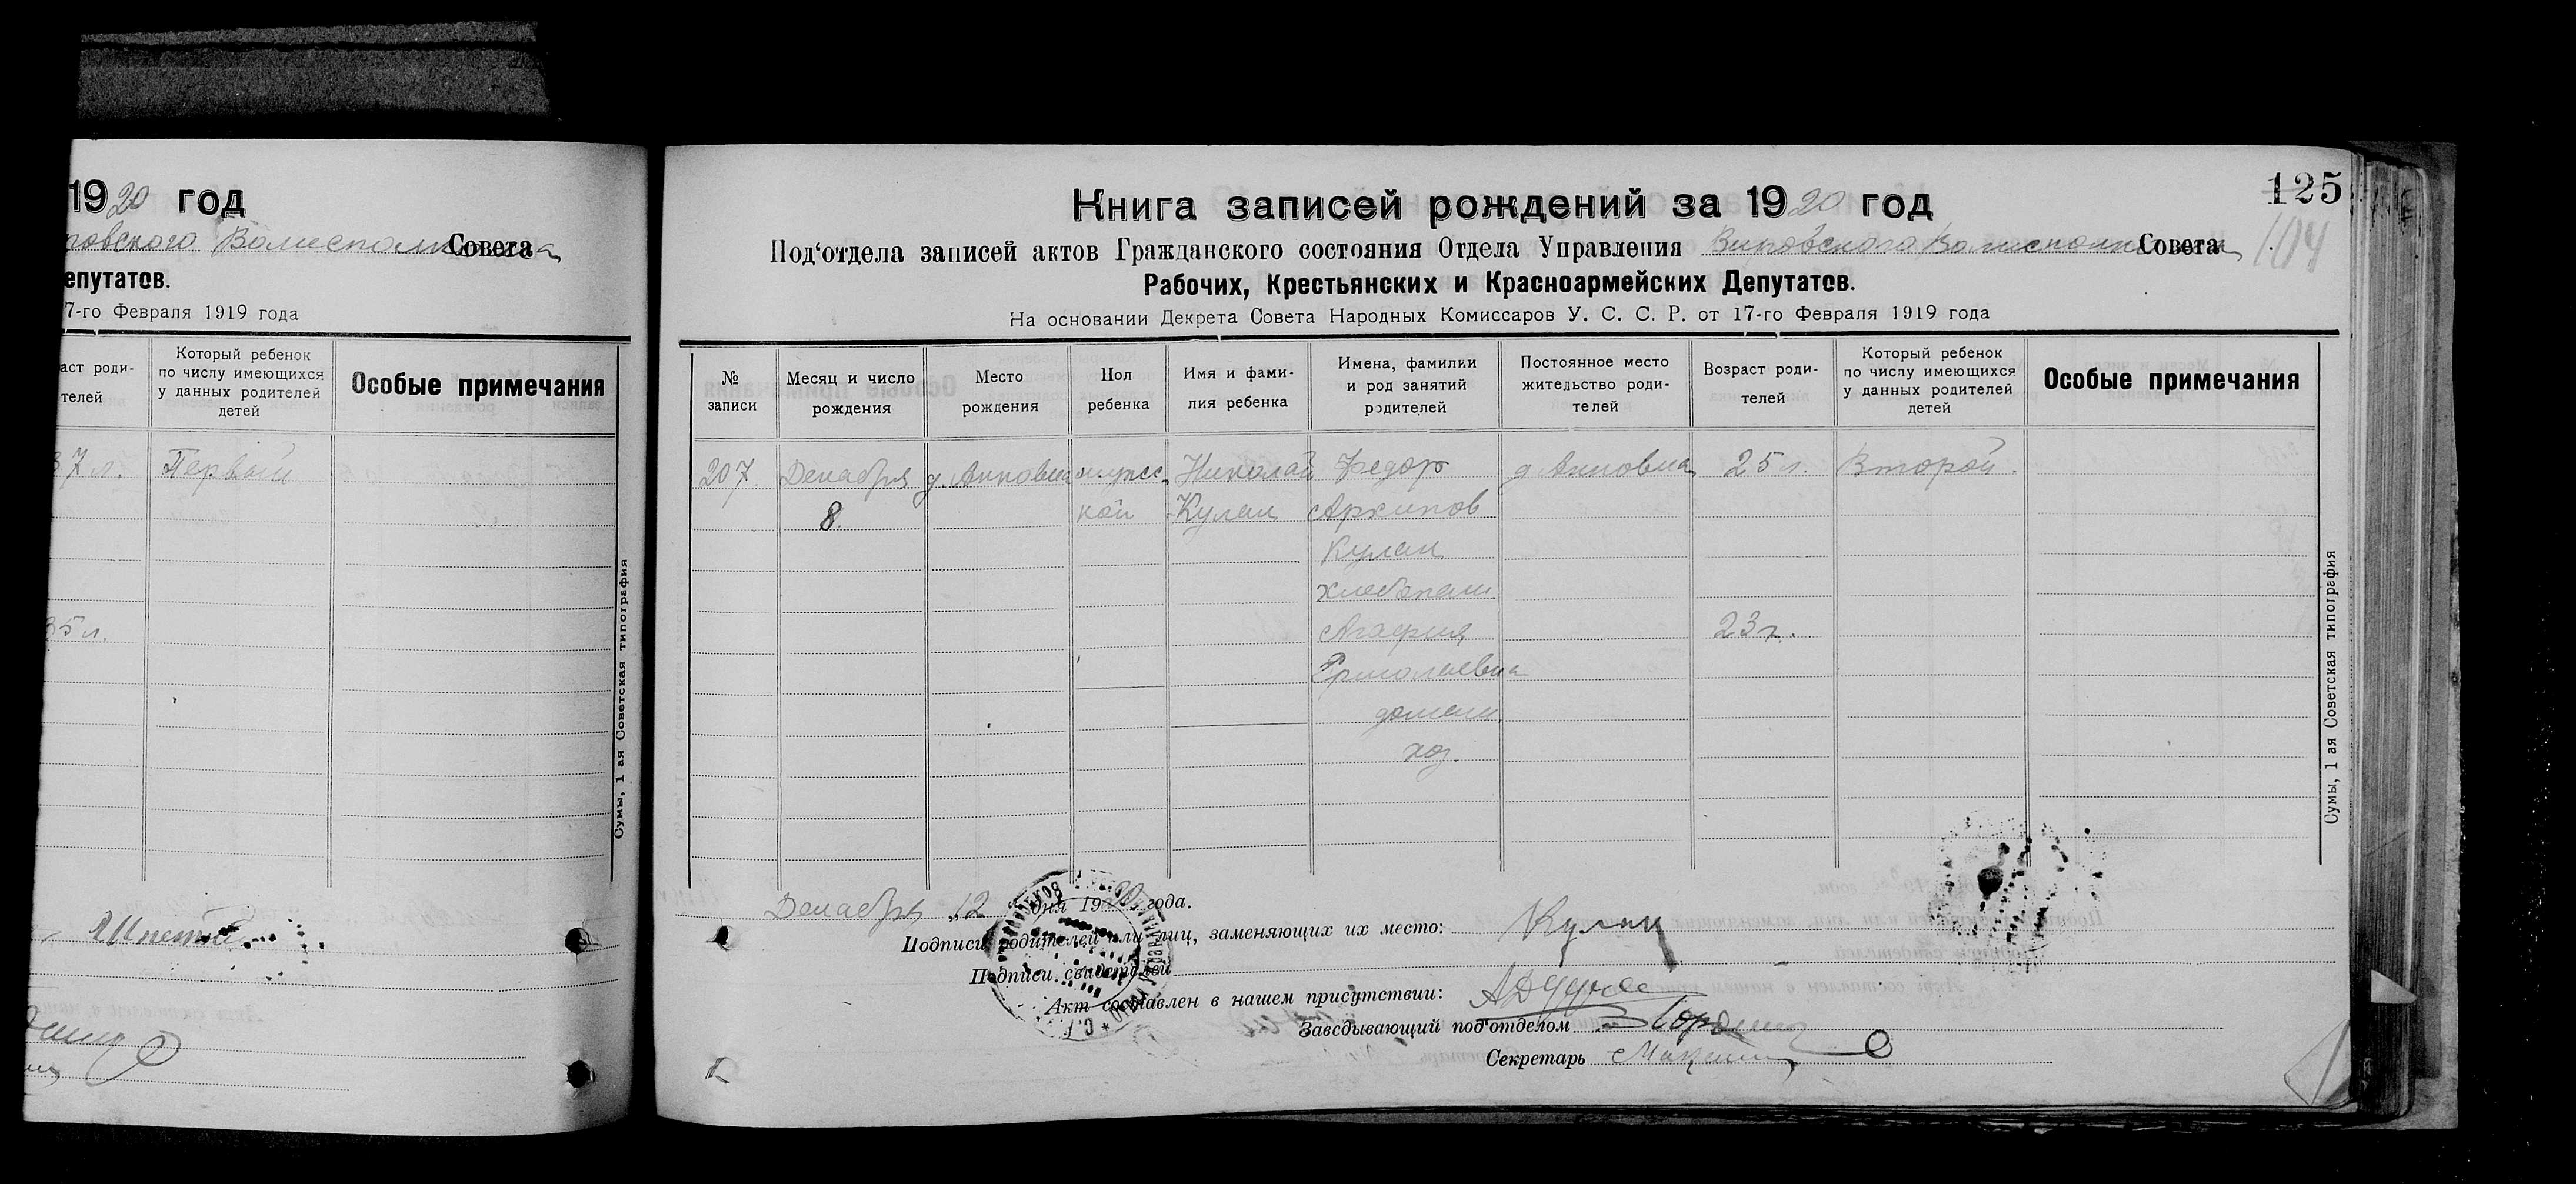 1920 год
Совета
епутатов.
7-го Февраля 1919 года
аст роди-
телей
Который ребенок
по числу имеющихся
у данных родителей
детей
Особые примечания
37 л.
Первый
35 л.
Сумы, 1 ая Советская типография
125
104
Книга записей рождений за 1920 год
Под‘отдела записей актов Гражданского состояния Отдела Управления Совета
Рабочих, Крестьянских и Красноармейских Депутатов.
На основании Декрета Совета Народных Комиссаров У. С. С. Р. от 17-го Февраля 1919 года
№
записи
Месяц и число
рождения
Место
рождения
Пол
ребенка
Имя и фами-
лия ребенка
Имена, фамилии
и род занятий
родителей
Постоянное место
жительство роди-
телей
Возраст роди-
телей
Который ребенок
по числу имеющихся
у данных родителей
детей
Особые примечания
207 Декабря д. мужс Николай Федор д. 25 л. Второй.
8. кой Кулак Архипов
Кулак
хлебопаш
Агафия 23 г.
Ермолаевна
домаш.
хоз.
Сумы, 1 ая Советская типография
Декабря 12 дня 1920 года.
Подписи родителей или лиц, заменяющих их место: Кулак
Подписи свидетелей
Акт составлен в нашем присутствии:
Заведывающий под‘отделом
Секретарь